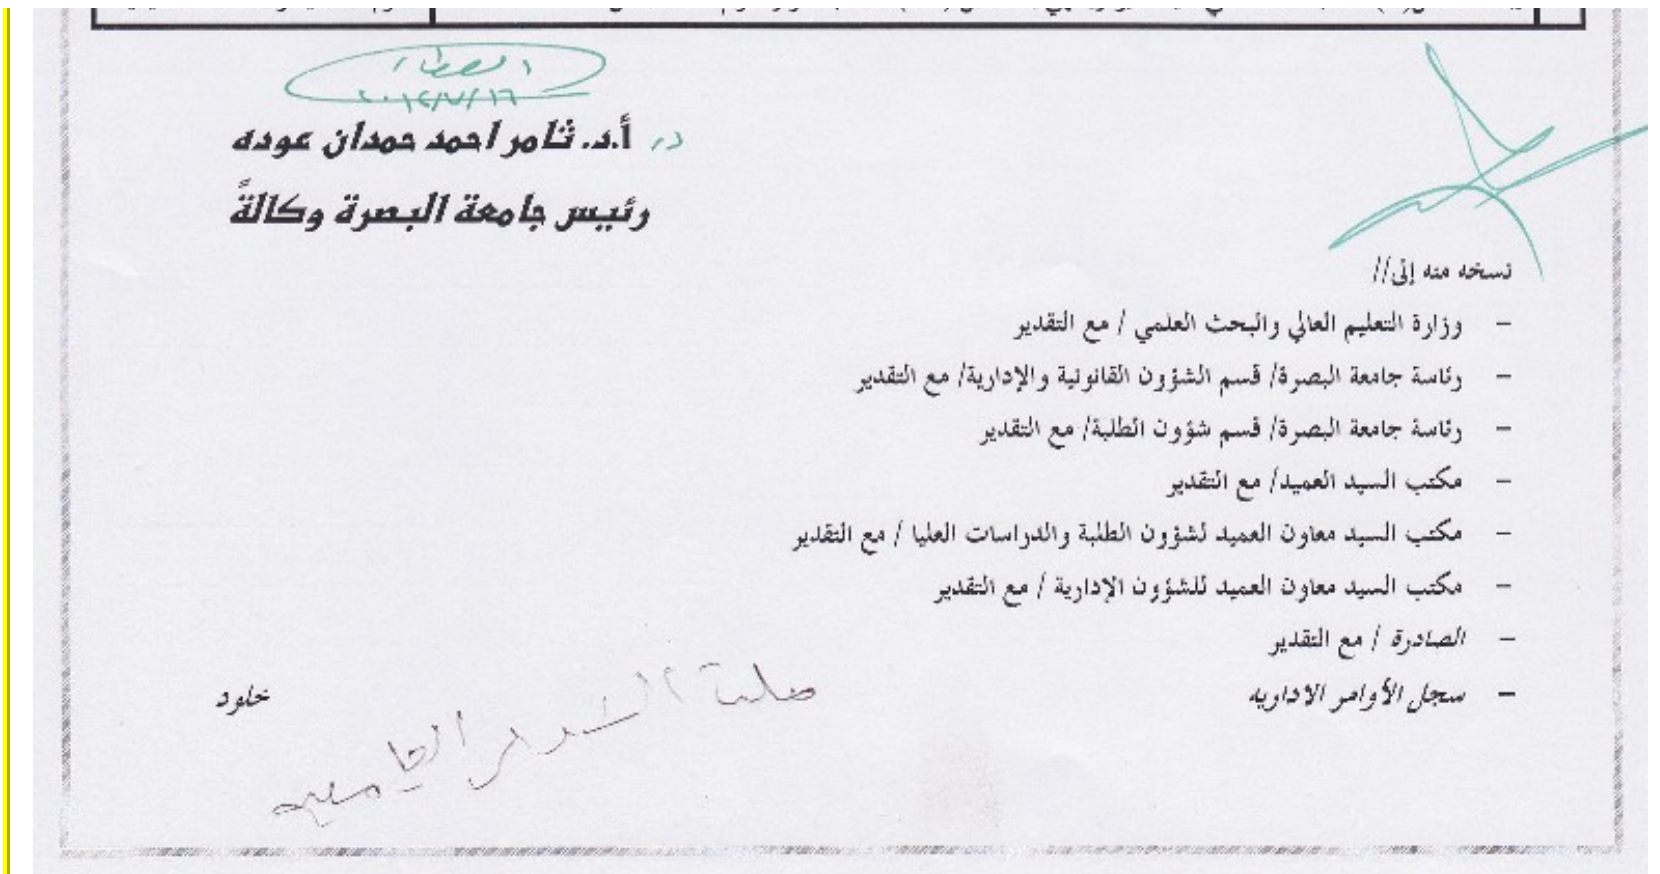 ٢٠١٤/٧/١٦
د. أ.د. ثامر احمد حمدان عوده
رئيس جامعة البصرة وكالةً
نسخه منه إلى//
– وزارة التعليم العالي والبحث العلمي / مع التقدير
– رئاسة جامعة البصرة/ قسم الشؤون القانونية والإدارية/ مع التقدير
– رئاسة جامعة البصرة/ قسم شؤون الطلبة/ مع التقدير
– مكتب السيد العميد/ مع التقدير
– مكتب السيد معاون العميد لشؤون الطلبة والدراسات العليا / مع التقدير
– مكتب السيد معاون العميد للشؤون الإدارية / مع التقدير
– الصادرة / مع التقدير
– سجل الأوامر الاداريه
خلود